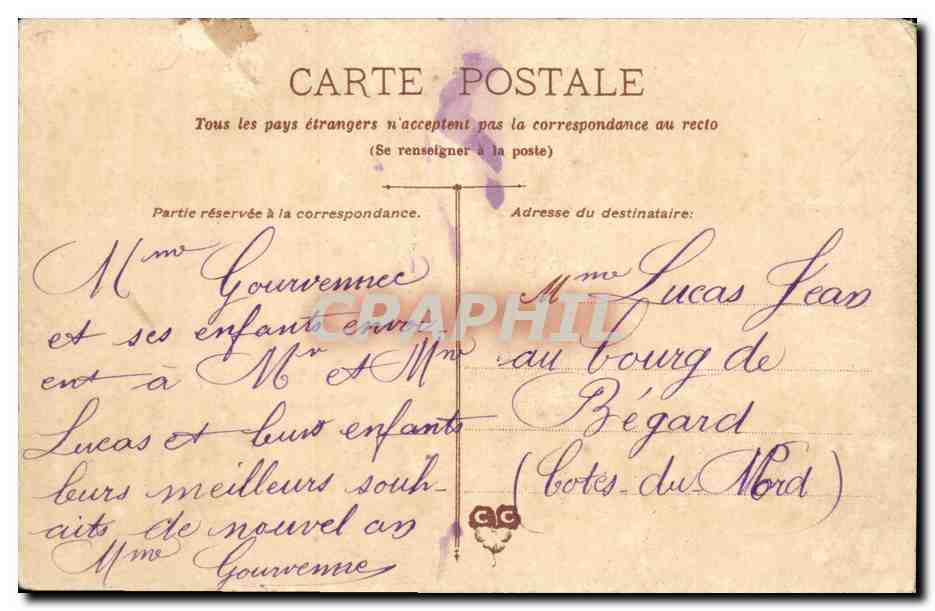 CARTE POSTALE
Tous les pays étrangers n'acceptent pas la correspondance au recto
(Se renseigner à la poste)
Partie réservée à la correspondance.
Mme Gourvennec
et ses enfants envoi-
ent à Mr et Mme
Lucas et leurs enfants
leurs meilleurs souh-
aits de nouvel an
Mme Gourvennec
Adresse du destinataire:
Mme Lucas Jean
au bourg de
Bégard
(Cotes-du-Nord)
CC
CPARPHIL